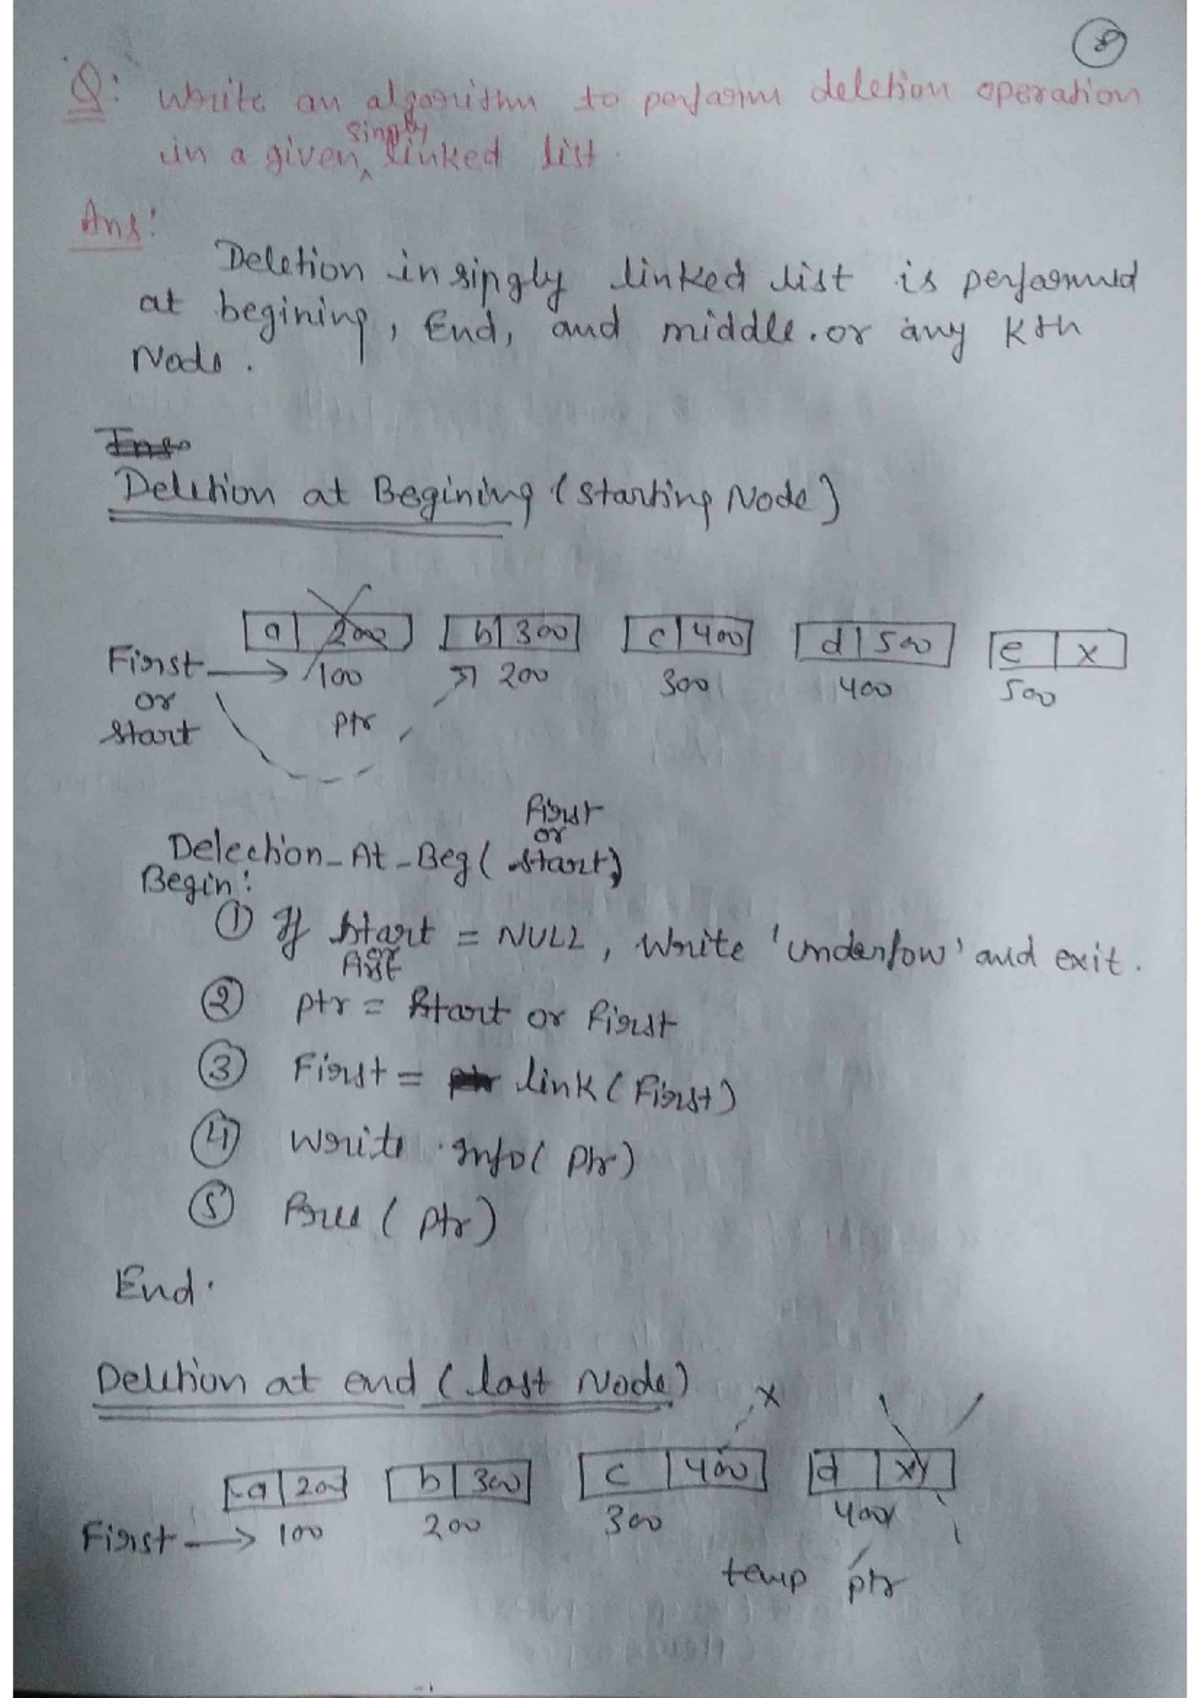 8
Q: Write an algorithm to perform deletion operation
in a given singly linked list.
Ans:
Deletion in singly linked list is performed
at begining, End, and middle. or any Kth
Node.
Deletion at Begining (Starting Node)
a 200 b 300 c 400 d 500 e x
First → 100 200 300 400 500
or
Start ptr
First
or
Delection_At_Beg( Start)
Begin:
① If Start = NULL, Write 'Underflow' and exit.
or
② Ptr = Start or First
③ First = link (First)
④ Write Info( Ptr)
⑤ Free ( Ptr)
End.
Deletion at end (last Node)
x
a 200 b 300 c 400 d x
First → 100 200 300 400
temp ptr